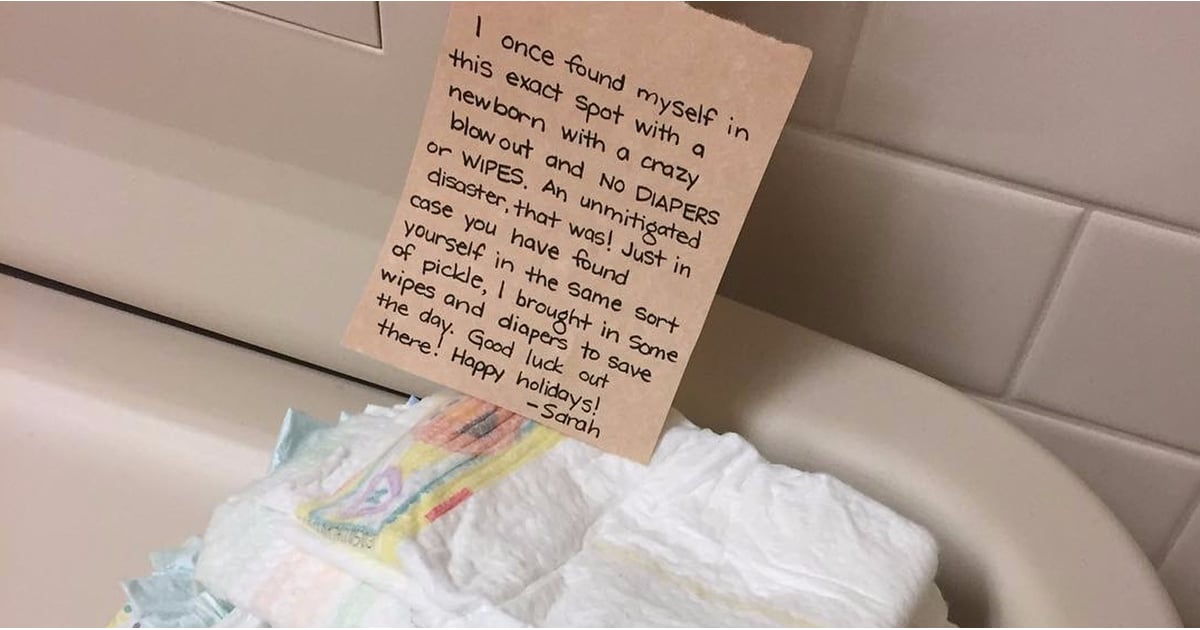 I once found myself in
this exact spot with a
newborn with a crazy
blowout and NO DIAPERS
or WIPES. An unmitigated
disaster, that was! Just in
case you have found
yourself in the same sort
of pickle, I brought in some
wipes and diapers to save
the day. Good luck out
there! Happy holidays!
-Sarah